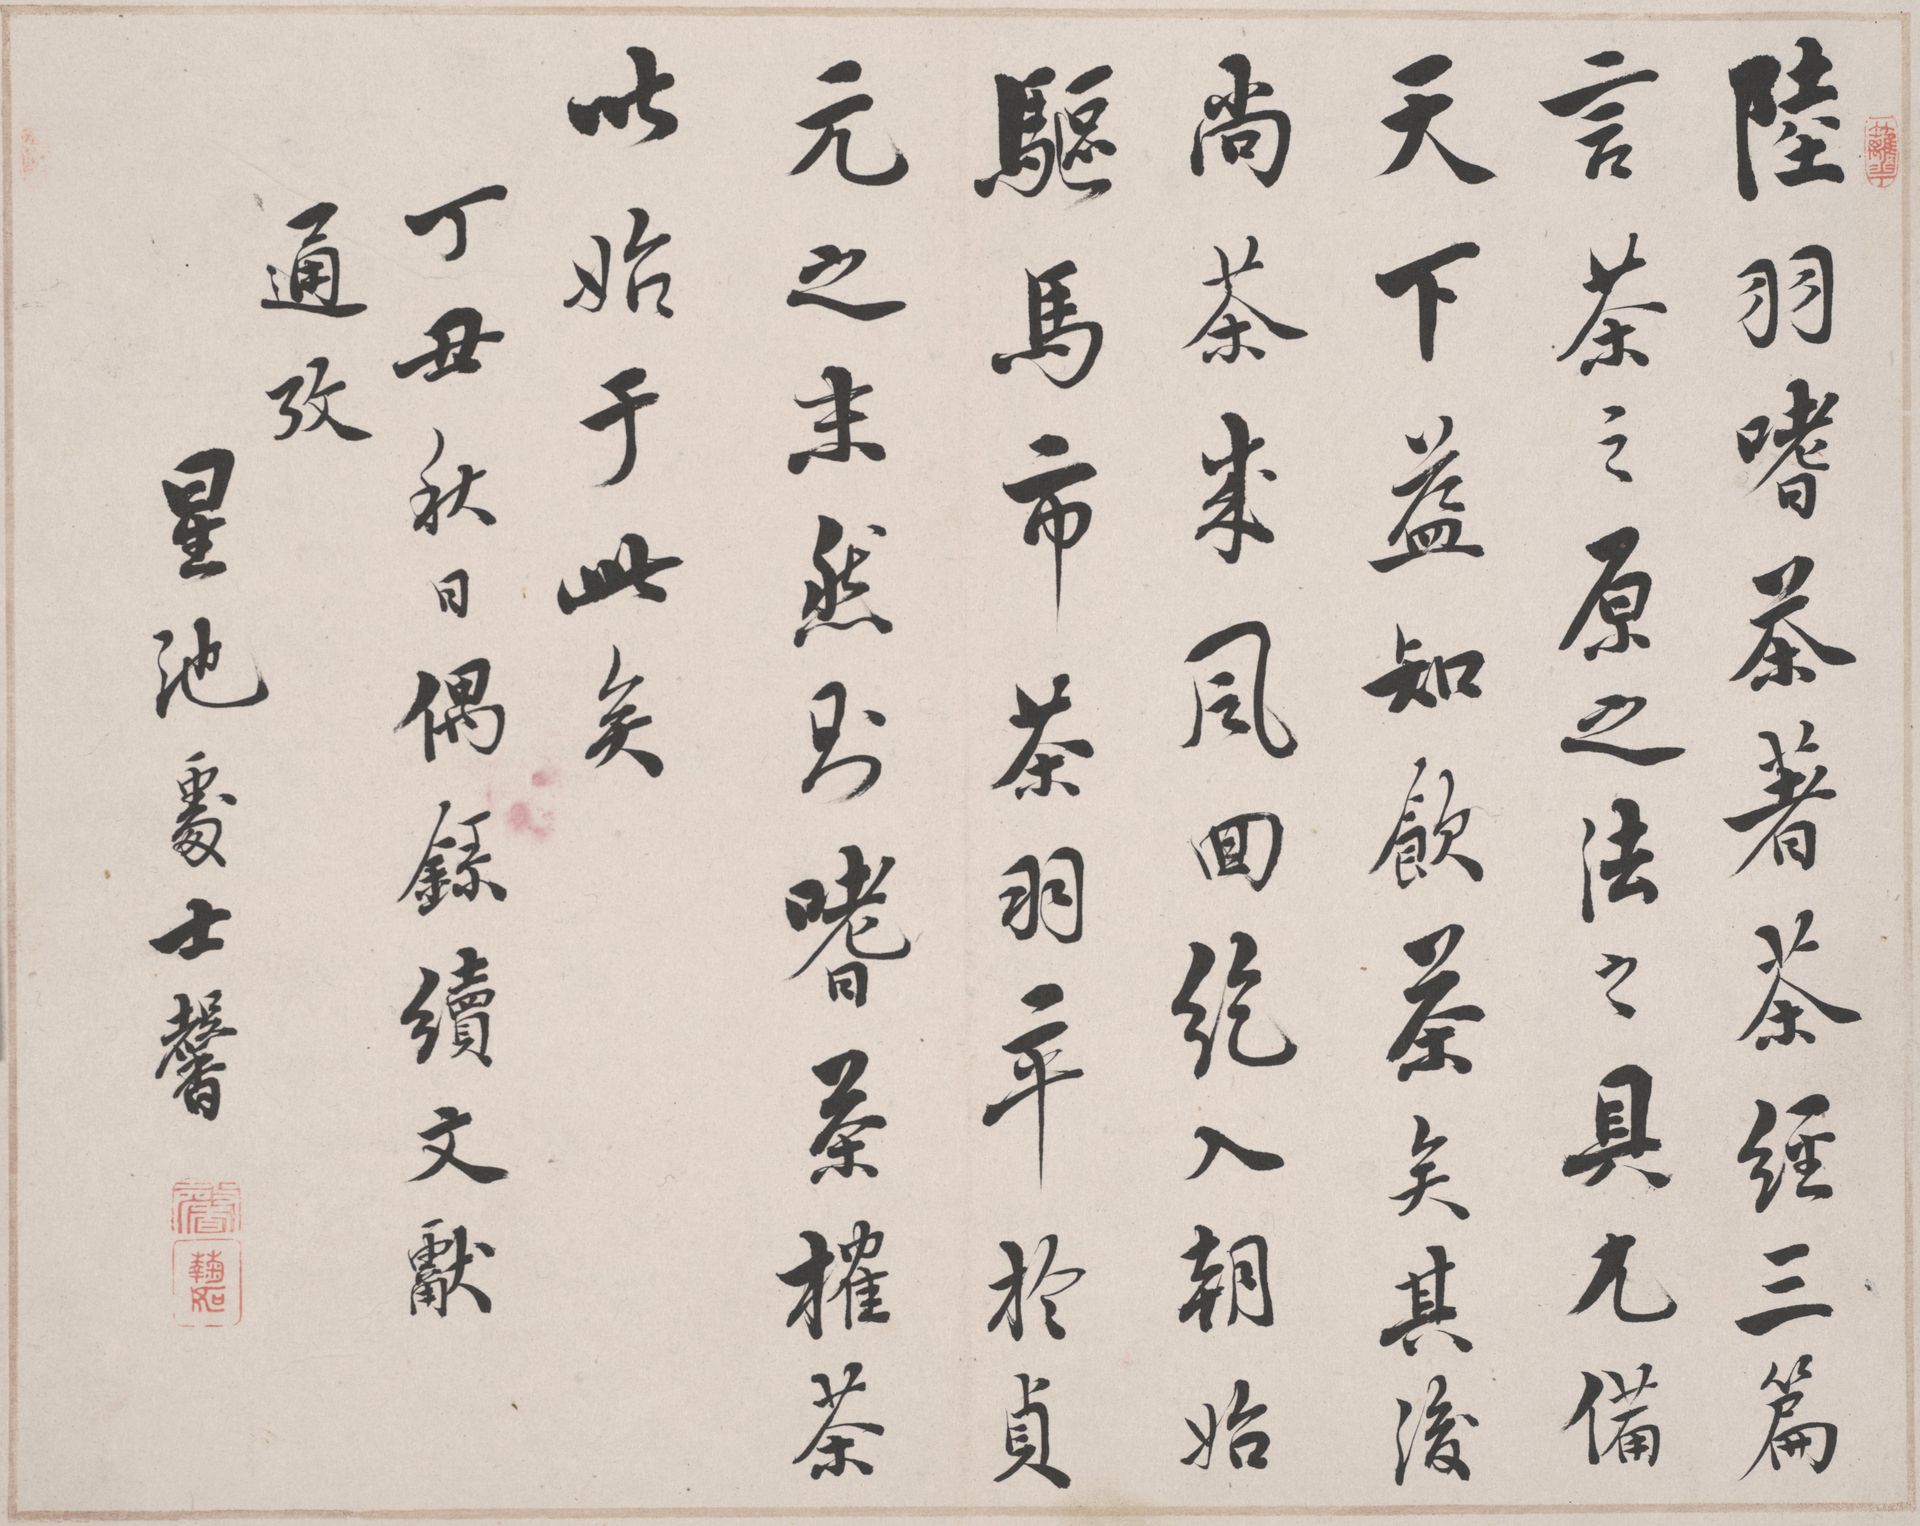 陸羽嗜茶著茶經三篇
言茶之原之法之具尤備
天下益知飲茶矣其後
尚茶成風回紇入朝始
驅馬市茶羽卒於貞
元之末然則嗜茶榷茶
皆始于此矣
丁丑秋日偶錄續文獻
通攷
星池處士馨